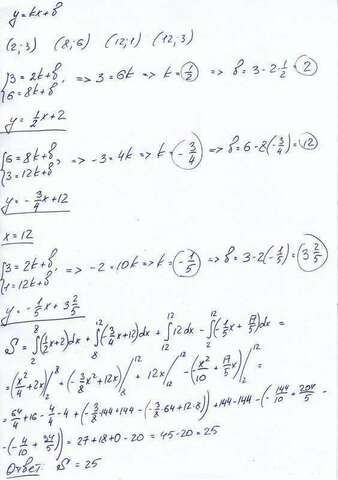 y=kx+b
(2;3) (8;6) (12;1) (12;3)
{3=2k+b, 6=8k+b => 3=6k => k=1/2 => b=3-2·1/2=2
y=1/2x+2
{6=8k+b, 3=12k+b => -3=4k => k=-3/4 => b=6-8(-3/4)=12
y=-3/4x+12
x=12
{3=2k+b, 1=12k+b => -2=10k => k=-1/5 => b=3-2(-1/5)=3 2/5
y=-1/5x+3 2/5
S=∫₂⁸(1/2x+2)dx+∫₈¹²(-3/4x+12)dx+∫₁₂¹²12dx-∫₂¹²(-1/5x+17/5)dx=
=(x²/4+2x)|₂⁸+(-3/8x²+12x)|₈¹²+12x|₁₂¹²-(-x²/10+17/5x)|₂¹²=
=64/4+16-4/4-4+(-3/8·144+144-(-3/8·64+12·8))+144-144-(-144/10+204/5-
-(-4/10+34/5))=27+18+0-20=45-20=25
Ответ: S=25